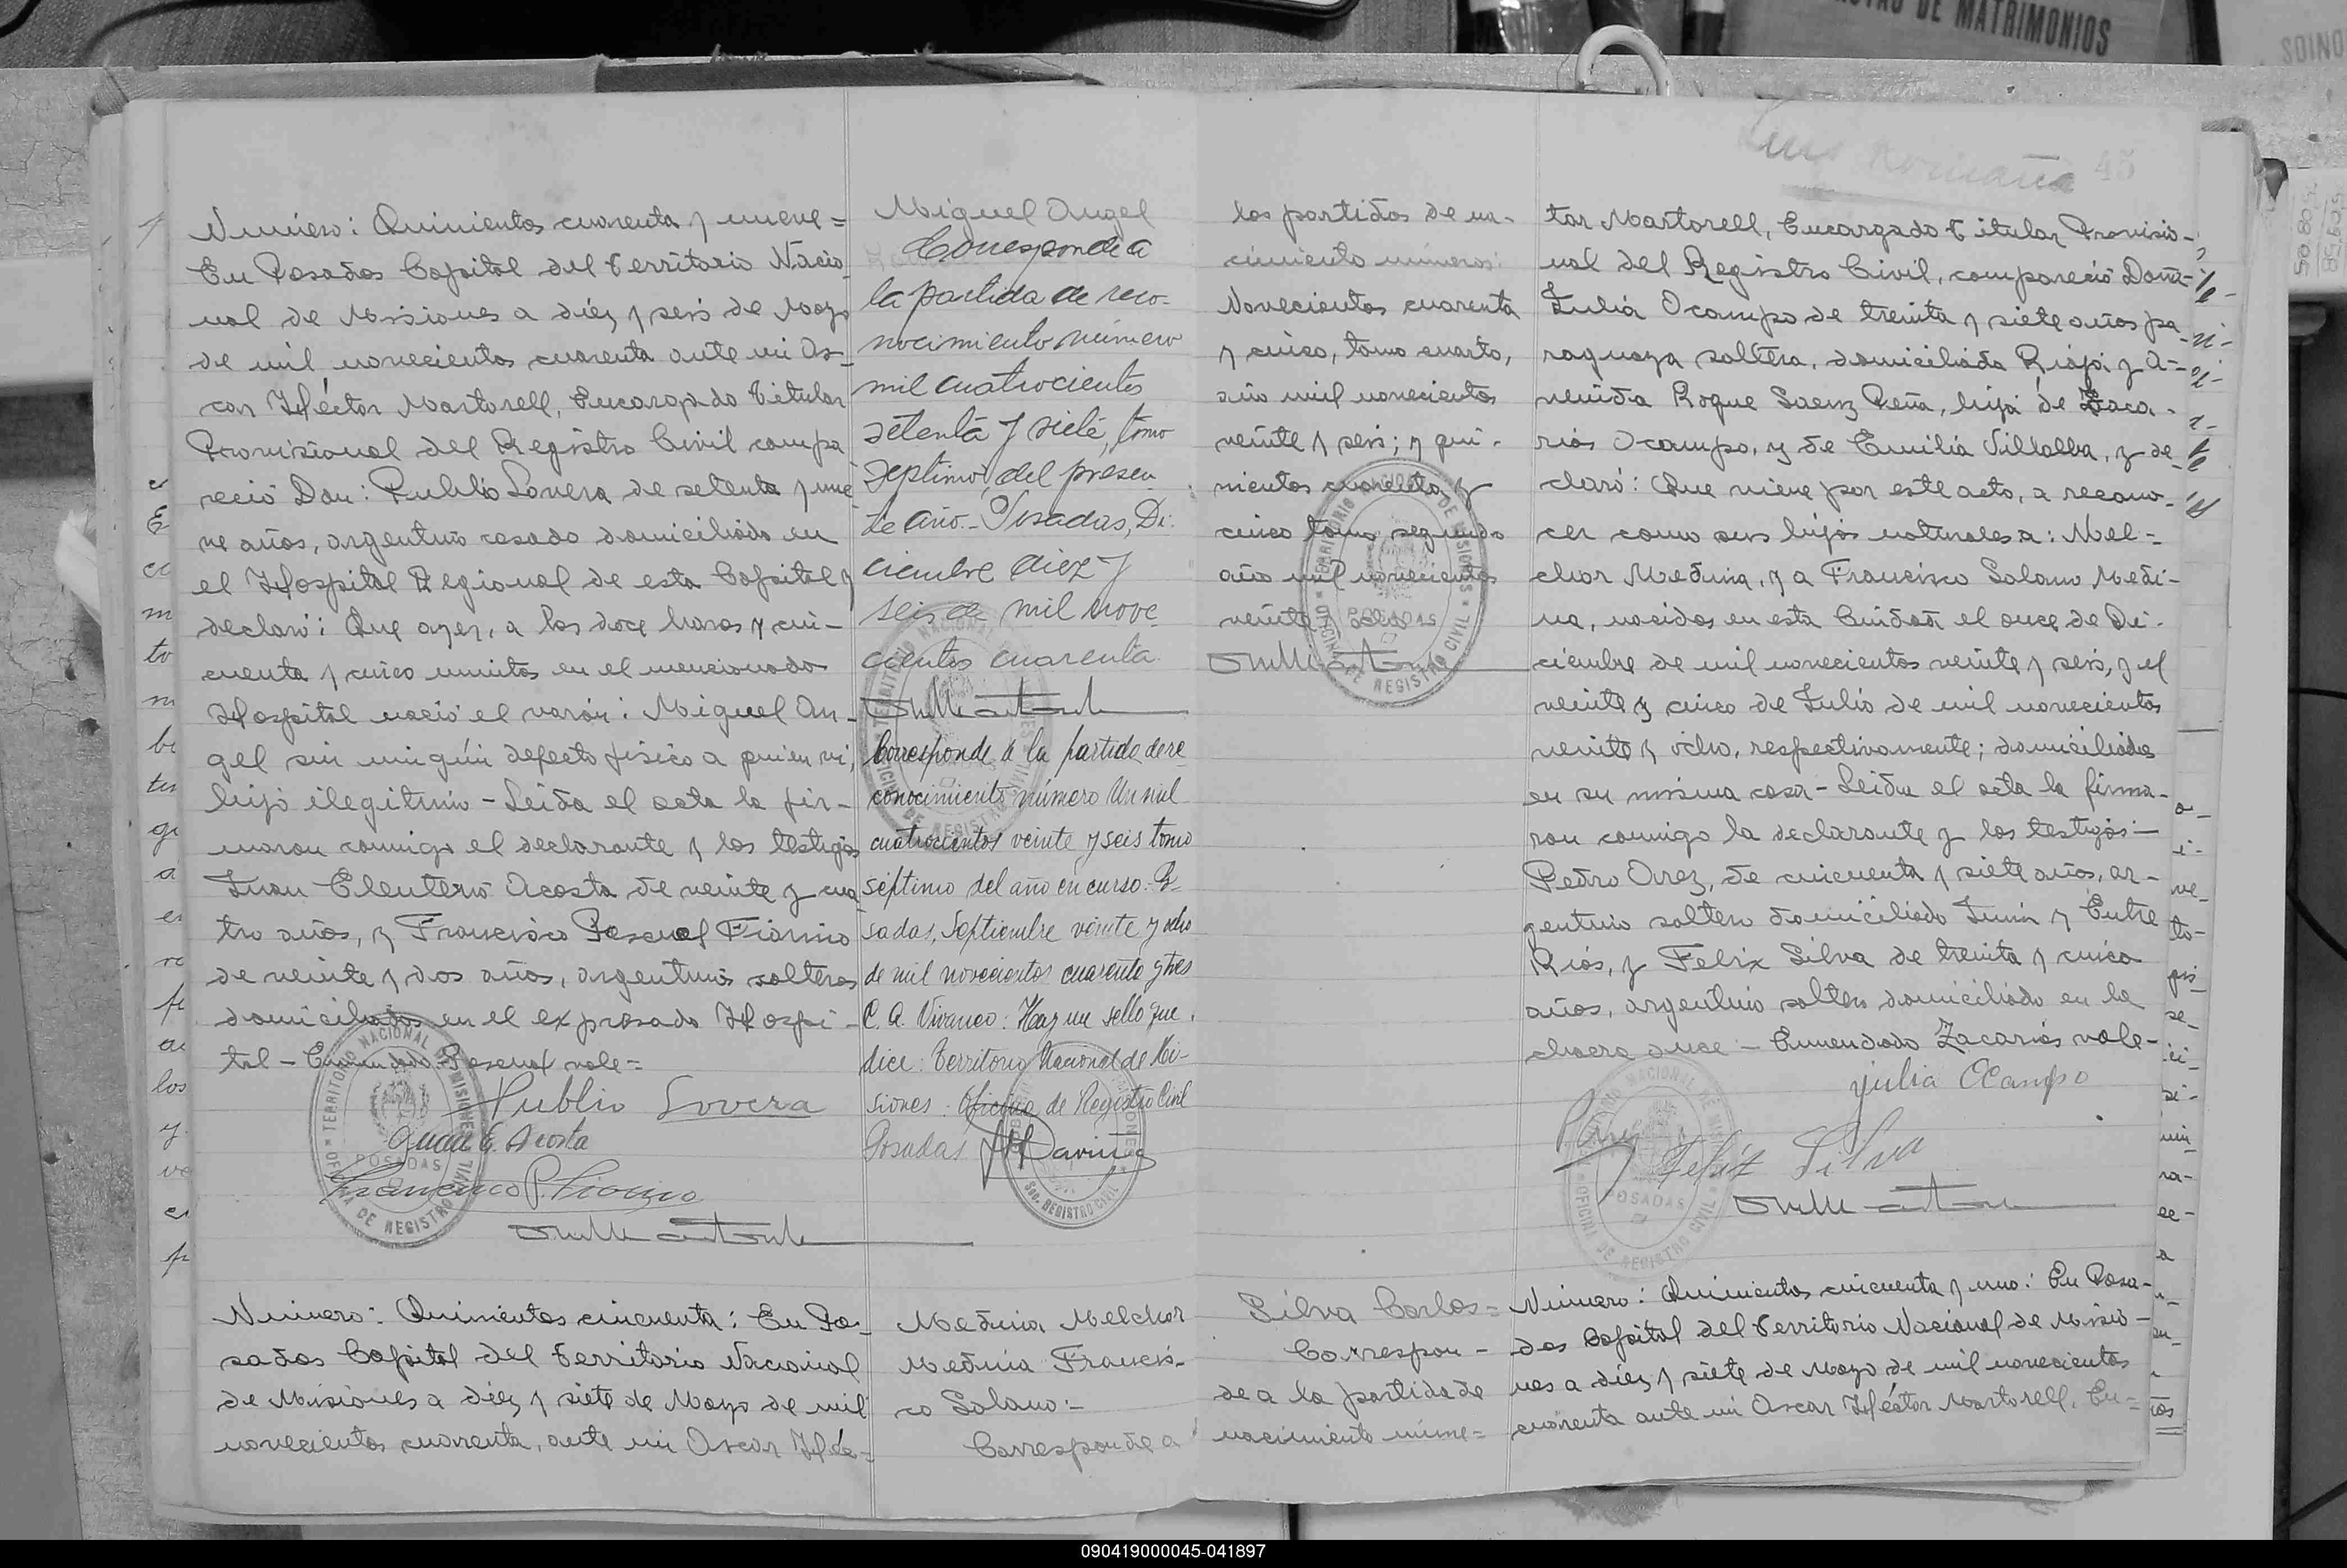 DE MATRIMONIOS
45
Número: Quinientos cuarenta y nueve=
En Posadas Capital del Territorio Nacio-
nal de Misiones a diéz y seis de Mayo
de mil novecientos cuarenta ante mi Os-
car Héctor Martorell, Encargado Titular
Provisional del Registro Civil compa
reció Don: Publio Lovera de setenta y nue
ve años, argentino casado domiciliado en
el Hospital Regional de esta Capital y
declaró: Que ayer, a las doce horas y cin-
cuenta y cinco minutos en el mencionado
Hospital nació el varón: Miguel An-
gel sin ningún defecto fisico a quien vi,
hijo ilegitimo - Leida el acta la fir-
maron conmigo el declarante y los testigos
Juan Eleuterio Acosta de veinte y cua
tro años, y Francisco Pascual Fiorino
de veinte y dos años, argentinos solteros
domiciliados en el expresado Hospi-
tal - Enmendado Pascual vale=
Publio Lovera
Juan E. Acosta
Francisco P. Fiorino
TERRITORIO NACIONAL DE MISIONES
POSADAS
OFICINA DE REGISTRO CIVIL
Miguel Angel
Corresponde a
la partida de reco-
nocimiento número
mil cuatrocientos
setenta y siete, tomo
septimo, del presen
te año.- Posadas, Di-
ciembre diez y
seis de mil nove
cientos cuarenta.
Corresponde a la partida de re
conocimiento número Un mil
cuatrocientos veinte y seis tomo
séptimo del año en curso. Po
sadas, Septiembre veinte y ocho
de mil novecientos cuarenta y tres
C. A. Vivanco: Hay un sello que
dice: Territorio Nacional de Mi-
siones: Oficina de Registro Civil
Posadas
Número: Quinientos cincuenta: En Po-
sadas Capital del Territorio Nacional
de Misiones a diéz y siete de Mayo de mil
novecientos cuarenta, ante mi Oscar Héc-
Medina Melchor
Medina Francis-
co Solano:-
Corresponde a
las partidas de na-
cimiento números:
Novecientos cuarenta
y cinco, tomo cuarto,
año mil novecientos
veinte y seis; y qui-
nientos cuarenta y
cinco tomo segundo
año mil novecientos
veinte y
TERRITORIO NACIONAL DE MISIONES
POSADAS
OFICINA DE REGISTRO CIVIL
tor Martorell, Encargado Titular Provisio-
nal del Registro Civil, compareció Doña-
Julia Ocampo de treinta y siete años pa-
raguaya soltera, domiciliada Rioja y A-
venida Roque Saenz Peña, hija de Zaca-
rias Ocampo, y de Emilia Villalba, y de-
claró: Que viene por este acto, a recono-
cer como sus hijos naturales a: Mel-
chor Medina, y a Francisco Solano Medi-
na, nacidos en esta Ciudad el once de Di-
ciembre de mil novecientos veinte y seis, y el
veinte y cinco de Julio de mil novecientos
veinte y ocho, respectivamente; domiciliados
en su misma casa - Leida el acta la firma-
ron conmigo la declarante y los testigos:-
Pedro Orez, de cincuenta y siete años, ar-
gentino soltero domiciliado Junin y Entre
Rios, y Felix Silva de treinta y cinco
años, argentino soltero domiciliado en la
chacra once - Enmendado Zacarias vale-
Julia Ocampo
Felix Silva
TERRITORIO NACIONAL DE MISIONES
POSADAS
OFICINA DE REGISTRO CIVIL
Silva Carlos=
Correspon-
de a la partida de
nacimiento núme=
Número: Quinientos cincuenta y uno: En Posa-
das Capital del Territorio Nacional de Misio-
nes a diéz y siete de Mayo de mil novecientos
cuarenta ante mi Oscar Héctor Martorell, En=
090419000045-041897